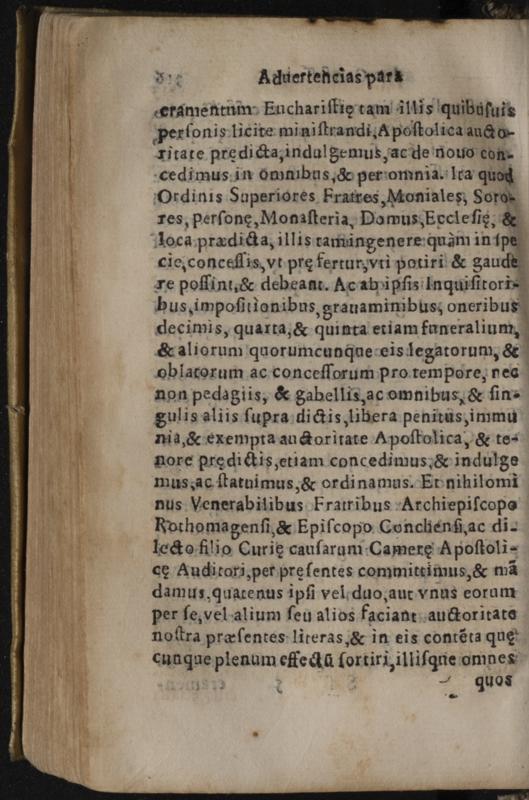 Aduertencias para
cramentum Euchariſtię tam illis quibuſuis
perſonis licite miniſtrandi, Apoſtolica aucto-
ritate prędicta, indulgemus, ac de nouo con-
cedimus in omnibus, & per omnia. Ita quod
Ordinis Superiores Fratres, Moniales, Soro-
res, perſonę, Monaſteria, Domus, Eccleſię, &
loca prædicta, illis tamingenere quàm in ſpe
cie, conceſſis, vt pręfertur, vti potiri & gaude
re poſſint, & debeant. Ac ab ipſis Inquiſitori-
bus, impoſitionibus, grauaminibus, oneribus
decimis, quarta, & quinta etiam funeralium,
& aliorum quorumcunque eis legatorum, &
oblatorum ac conceſſorum pro tempore, nec
non pedagiis, & gabellis, ac omnibus, & ſin-
gulis aliis ſupra dictis, libera penitus, immu
nia, & exempta auctoritate Apoſtolica, & te-
nore prędictis, etiam concedimus, & indulge
mus, ac ſtatuimus, & ordinamus. Et nihilomi
nus Venerabilibus Fratribus Archiepiſcopo
Rothomagenſi, & Epiſcopo Conchenſi, ac di-
lecto filio Curię cauſarum Camerę Apoſtoli-
cę Auditori, per pręſentes committimus, & mã
damus, quatenus ipſi vel duo, aut vnus eorum
per ſe, vel alium ſeu alios faciant auctoritate
noſtra præſentes literas, & in eis contẽta quę
cunque plenum effectũ ſortiri, illiſque omnes
quos